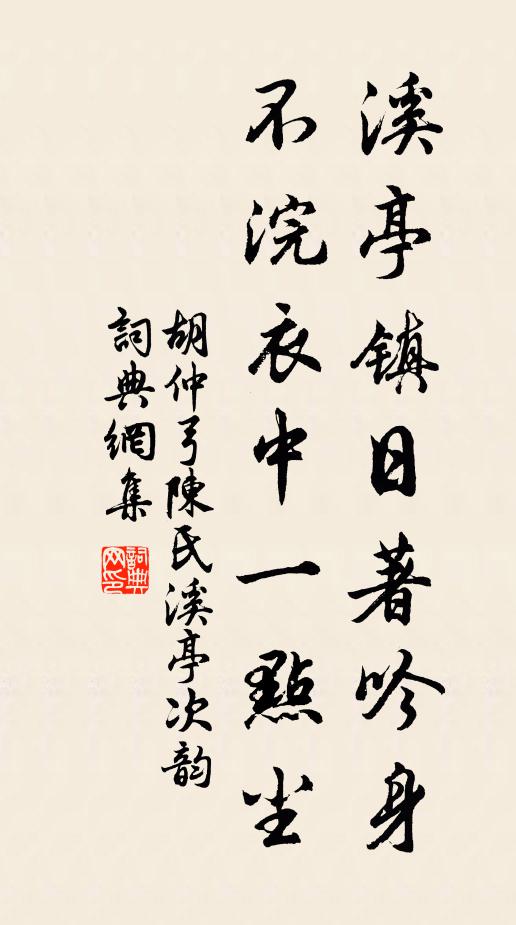 溪亭镇日著吟身
不浣衣中一點尘
胡仲弓陳氏溪亭次韵
詞典網集
詞典网印